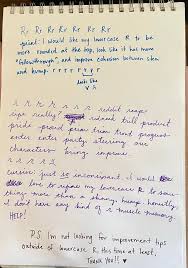 Rr Rr Rr Rr Rr Rr
print: I would like my lowercase R to be
more rounded at the top, look like it has more
"followthrough" and improve cohesion between stem
and hump. r r r r r r r r
looks like
v's
r r r r r r r reddit
ripe really ruined tull product
pride proud prim trim trout
enter entry party starring our
characters bring improve
r r r r r
cursive: just so inconsistent. I would
love to refine my lowercase R to
thing more than a shaky hump. honestly,
I don't have any kind of r muscle memory.
HELP!
P.S. I'm not looking for improvement tips
outside of lowercase R this time at least.
Thank you!!